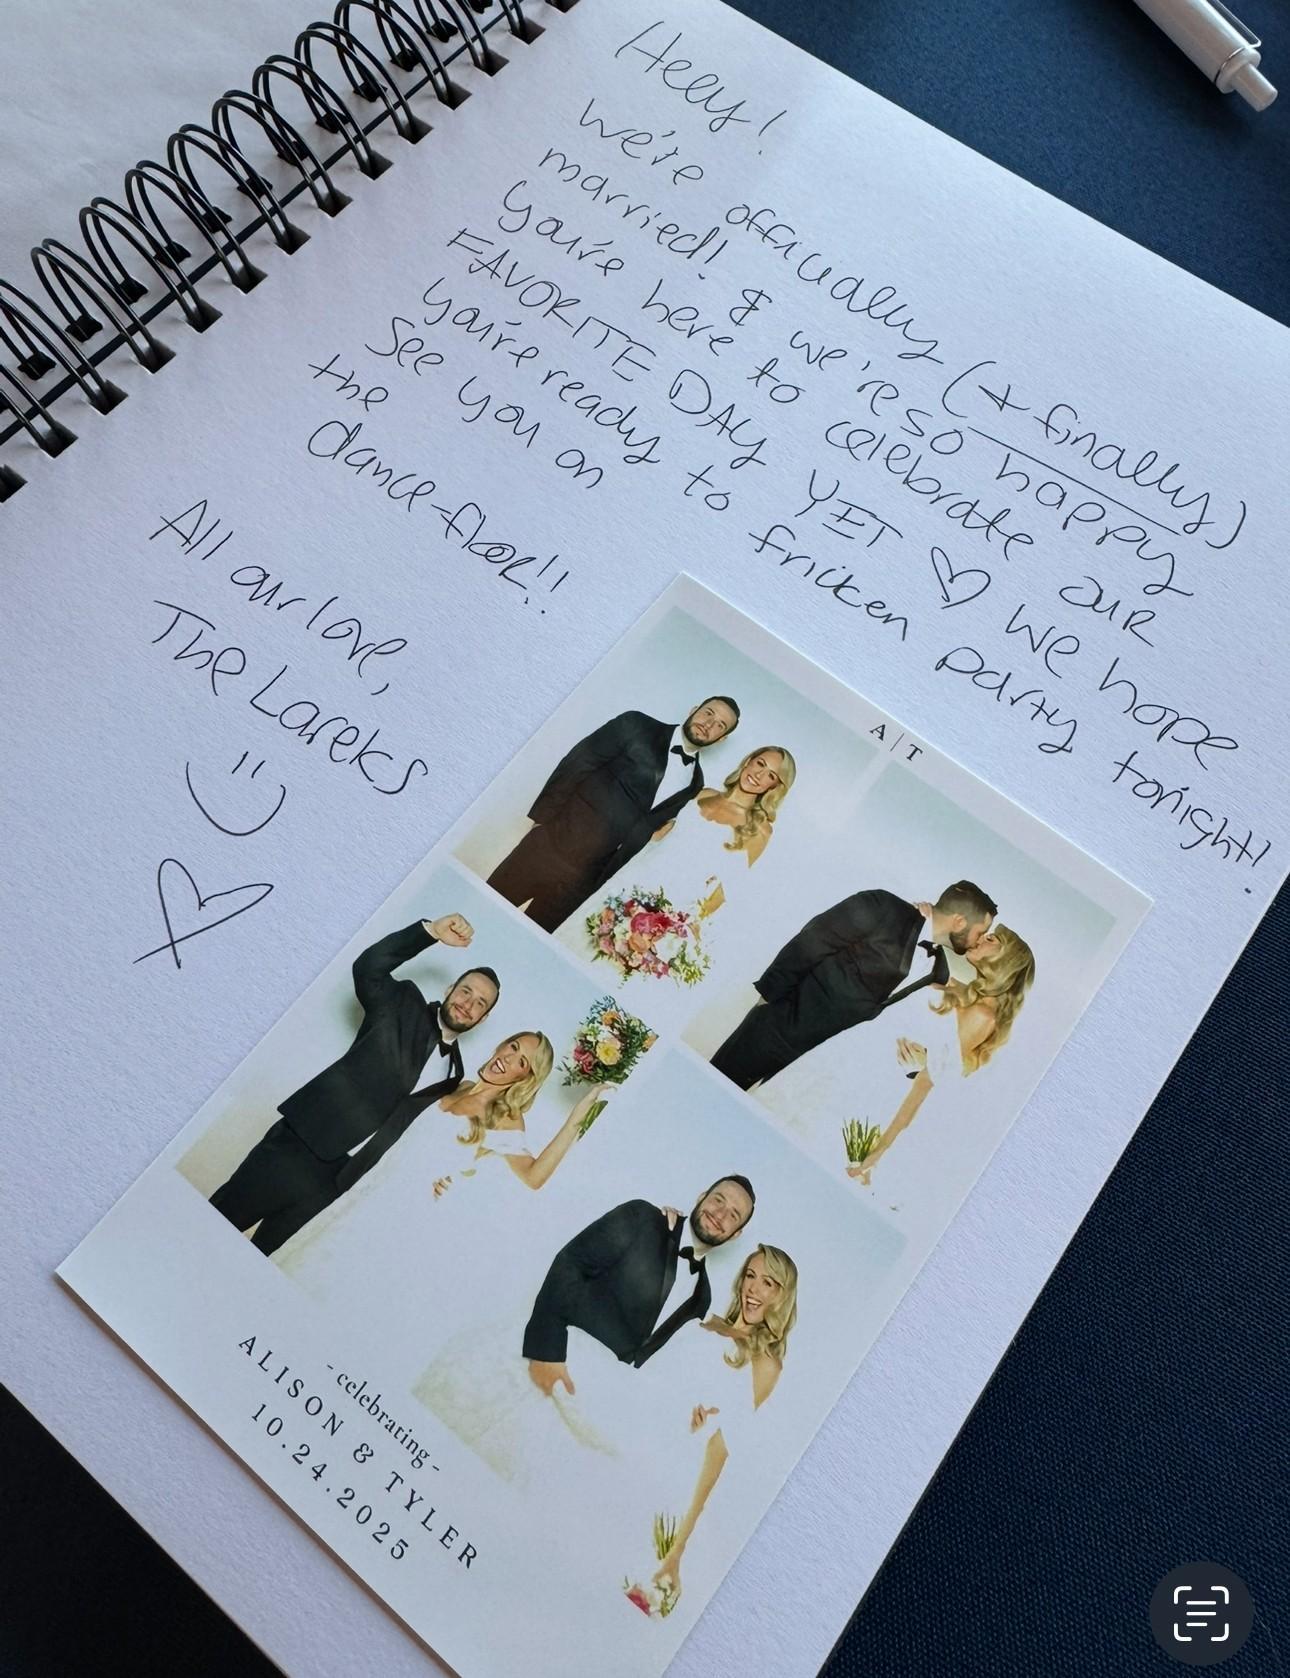 Heey!
We're officially (+ finally)
married! & we're so happy
you're here to celebrate our
FAVORITE DAY YET ♡ We hope
you're ready to fricken party tonight!
See you on
the
dance-floor!!
All our love,
The Lareks
A|T
- celebrating -
ALISON & TYLER
10.24.2025